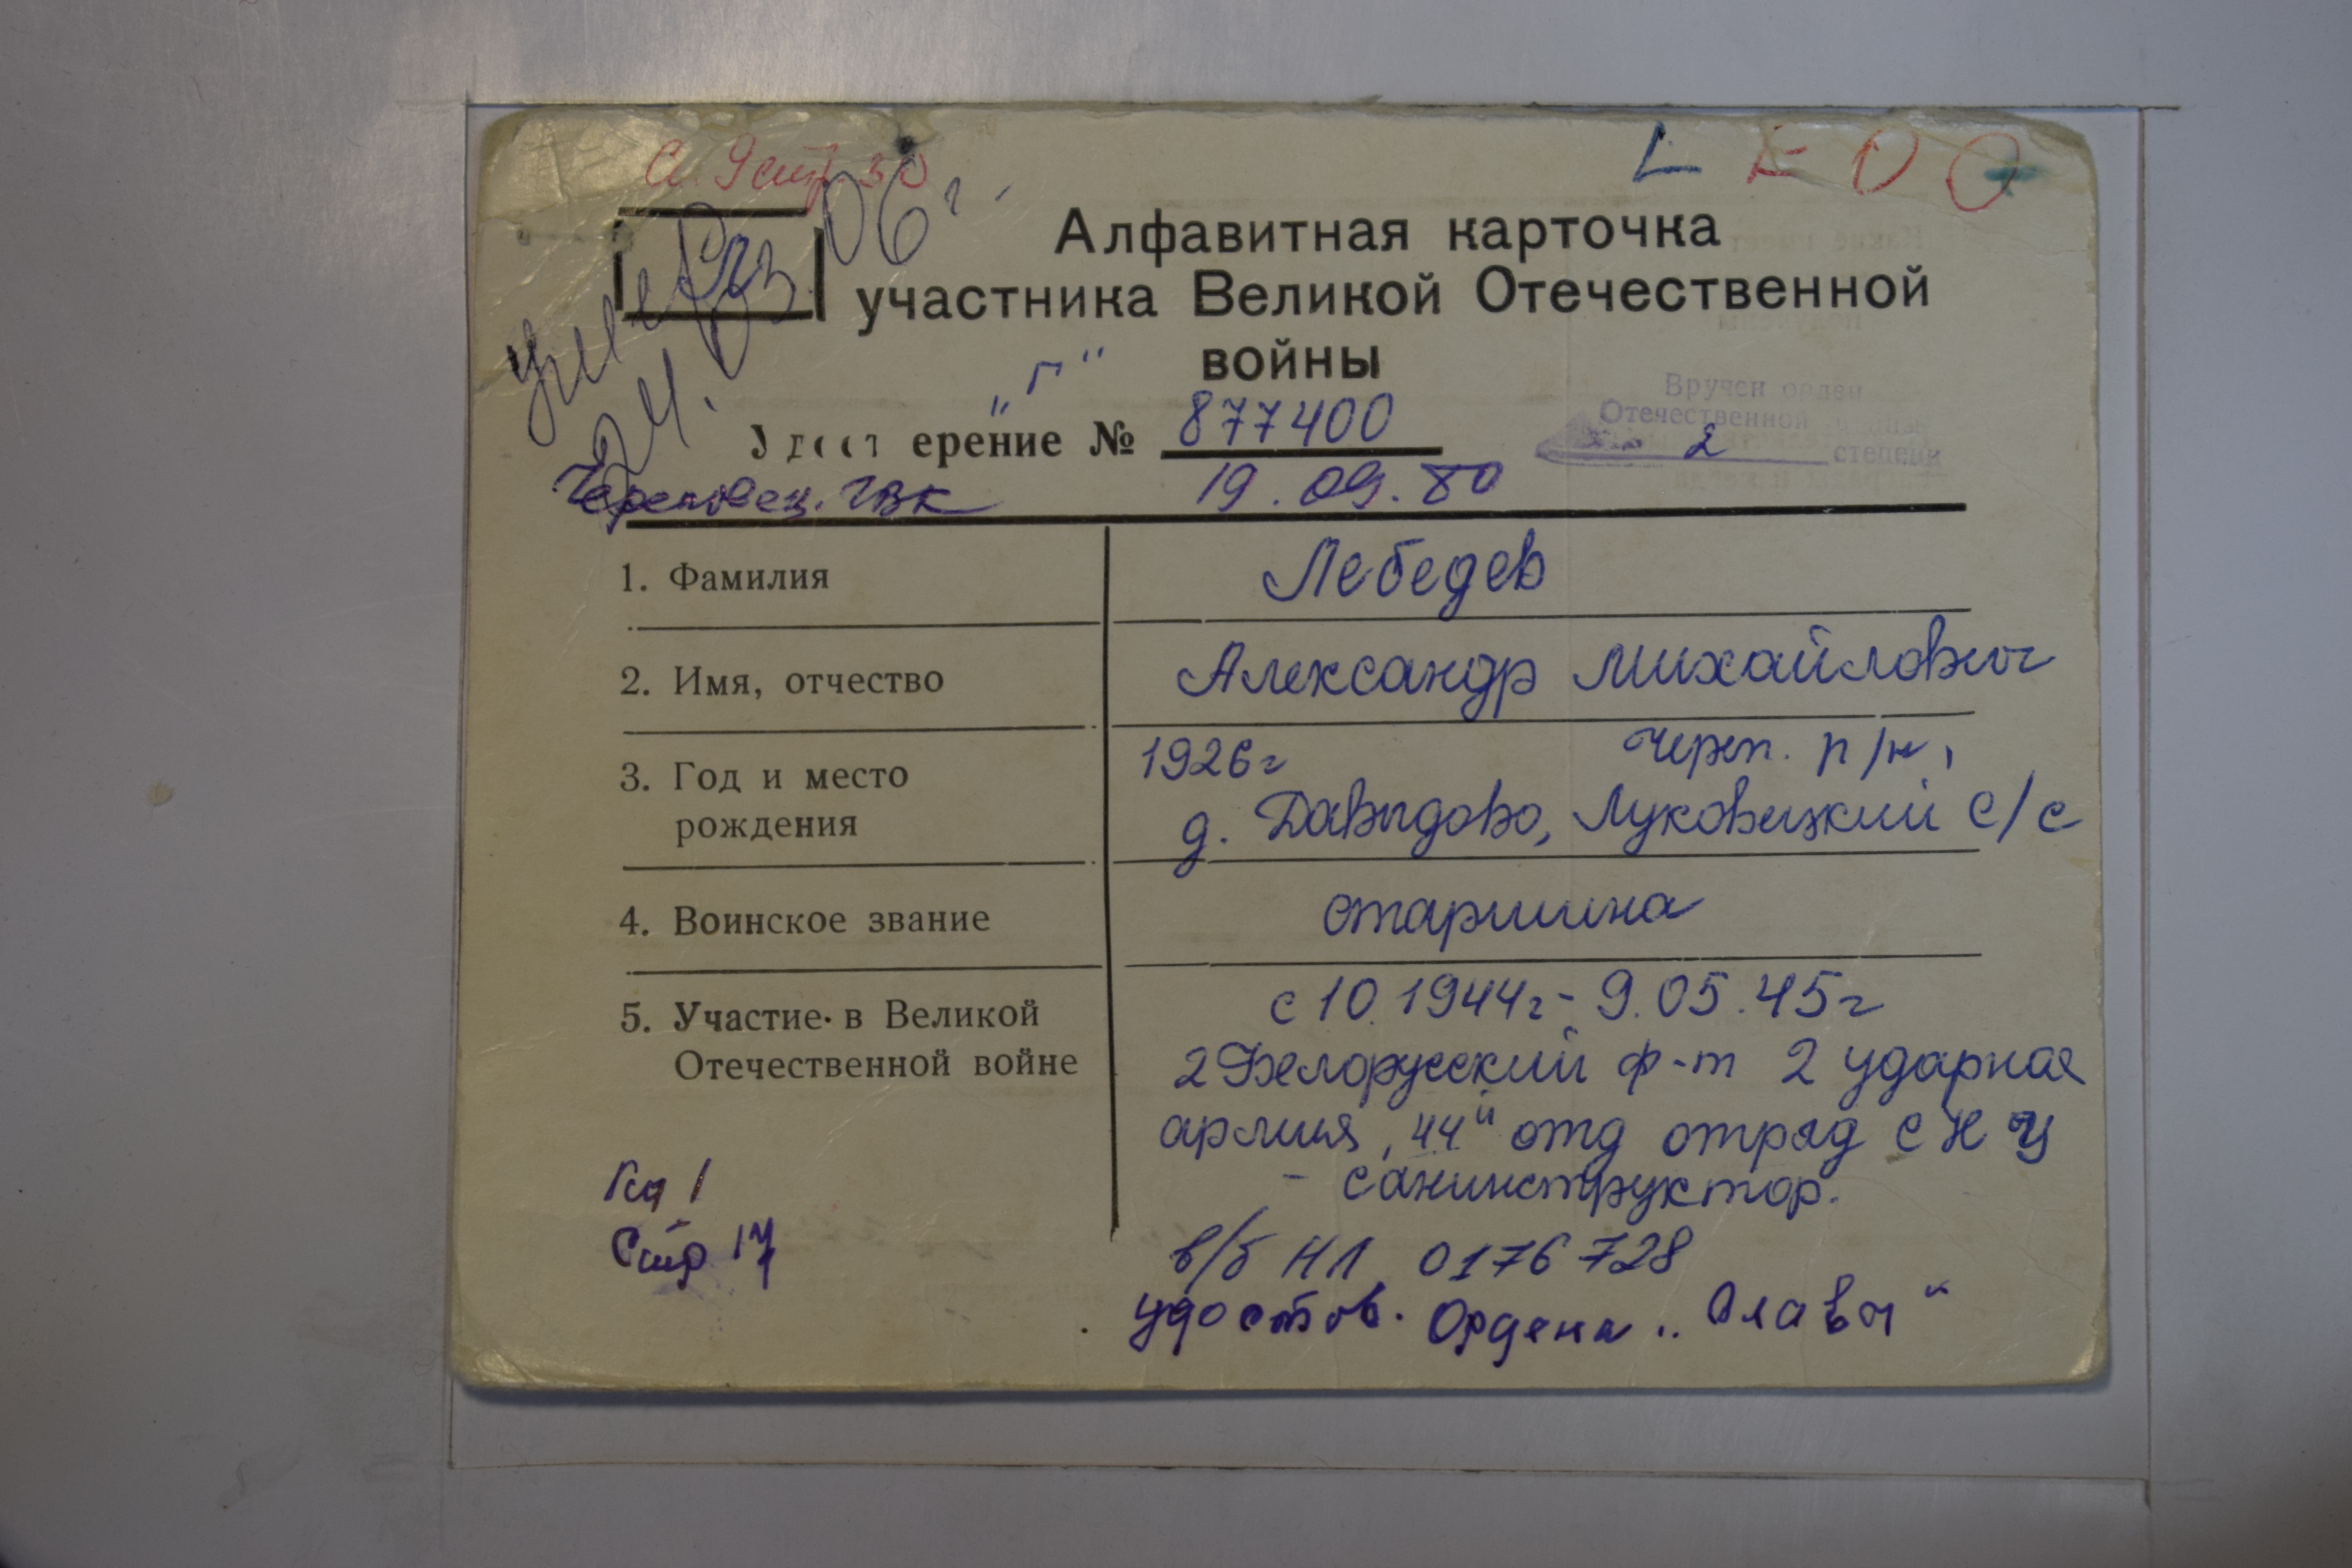 Алфавитная карточка
участника Великой Отечественной
войны
„Г"
ерение № 877400
Вручен орден
Отечественной войны
2 степени
Череповец. ГВК 19.09.80
1. Фамилия Лебедев
2. Имя, отчество Александр Михайлович
3. Год и место 1926г Череп. р/н,
рождения д. Давыдово, Луковецкий с/с
4. Воинское звание старшина
5. Участие в Великой с 10.1944г - 9.05.45г
Отечественной войне 2 Белорусский ф-т 2 ударная
армия, 44й отд отряд
- санинструктор.
Кн 1
Стр 17
в/б НЛ 0176728
удостов. Ордена „Славы"